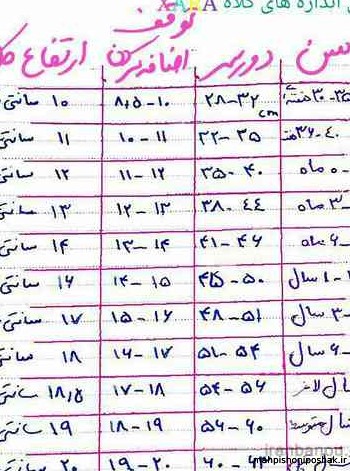 اندازه های کلاه
توقف
سن دورسر اضافه کردن ارتفاع
۳۰-۳۵ هفته ۲۸-۳۲ cm ۸٫۵-۱۰ ۱۰ سانتی
۳۶-۴۰ ۳۲-۳۵ ۱۰-۱۱ ۱۱ سانتی
ماه ۳۵-۴۰ ۱۱-۱۲ ۱۲ سانتی
۳ ماه ۳۸-۴۴ ۱۲-۱۳ ۱۳ سانتی
۶ ماه ۴۱-۴۶ ۱۳-۱۴ ۱۴ سانتی
۱ سال ۴۵-۵۰ ۱۴-۱۵ ۱۶ سانتی
۳ سال ۴۸-۵۱ ۱۵-۱۶ ۱۷ سانتی
۶ سال ۵۱-۵۴ ۱۶-۱۷ ۱۸ سانتی
۵۴-۵۶ ۱۷-۱۸ ۱۸٫۵ سانتی
متوسط ۵۶-۶۰ ۱۸-۱۹ ۱۹ سانتی
۱۹-۲۰ ۲۰ سانتی
mahpishonipooshak.ir